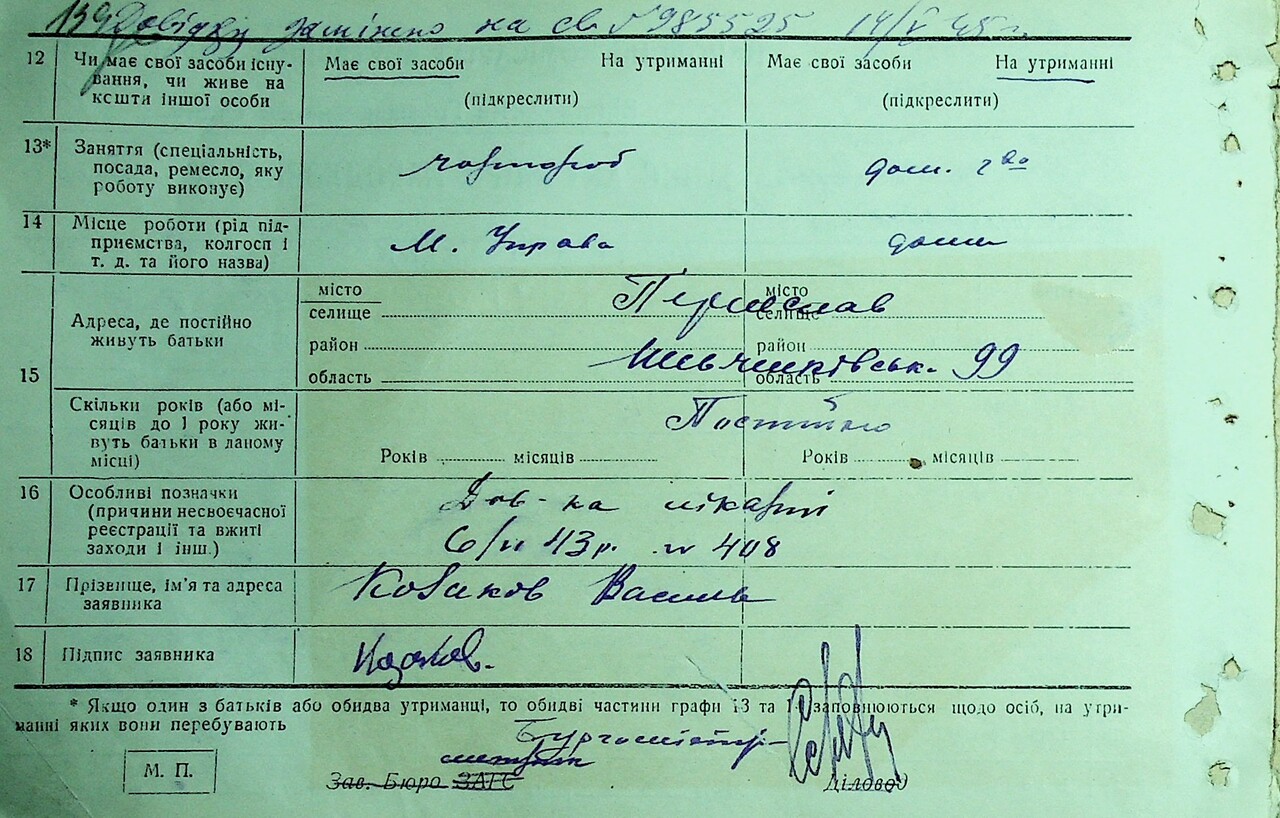 Довідку замінено на св №985525 14/V 45 г.
12 Чи має свої засоби існу- Має свої засоби На утриманні Має свої засоби На утриманні
вування, чи живе на
кошти іншої особи (підкреслити) (підкреслити)
13* Заняття (спеціальність,
посада, ремесло, яку дом. г-во
роботу виконує)
14 Місце роботи (рід під-
приємства, колгосп і М. Управа дома
т. д. та його назва)
15 Адреса, де постійно живуть батьки
місто Переяслав місто
селище селище
район район
область область 99
Скільки років (або мі-
сяців до 1 року жи- Постійно
вуть батьки в даному
місці) Років місяців Років місяців
16 Особливі позначки Дов-ка лікарні
(причини несвоєчасної
реєстрації та вжиті 6/II 43 р. № 408
заходи і інш.)
17 Прізвище, ім'я та адреса Козаков Василь
заявника
18 Підпис заявника Козаков.
* Якщо один з батьків або обидва утриманці, то обидві частини графи 13 та 14 заповнюються щодо осіб, на утри-
манні яких вони перебувають
Бургомістр
М. П.
Зав. Бюро ЗАГС Діловод